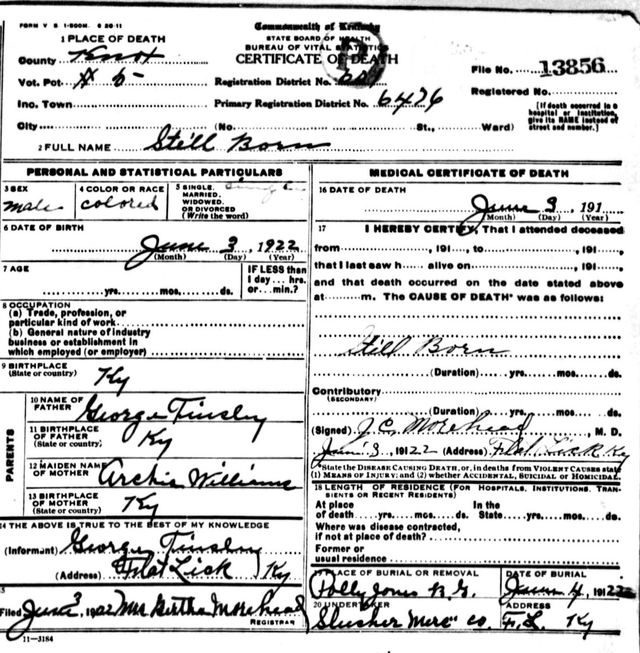 FORM V S 1-500M. 6 20-11
Commonwealth of Kentucky
STATE BOARD OF HEALTH
BUREAU OF VITAL STATISTICS
CERTIFICATE OF DEATH
1 PLACE OF DEATH
County Knox
Vot. Pct # 5
Inc. Town
City (No. St., Ward)
Registration District No.
Primary Registration District No. 6476
File No. 13856
Registered No.
[If death occurred in a hospital or institution, give its NAME instead of street and number.]
2 FULL NAME Still Born
PERSONAL AND STATISTICAL PARTICULARS
3 SEX
male
4 COLOR OR RACE
colored
5 SINGLE, MARRIED, WIDOWED, OR DIVORCED (Write the word)
single
6 DATE OF BIRTH
June 3, 1922
(Month) (Day) (Year)
7 AGE
yrs. mos. ds.
IF LESS than 1 day ... hrs. or ... min.?
8 OCCUPATION
(a) Trade, profession, or particular kind of work
(b) General nature of industry business or establishment in which employed (or employer)
9 BIRTHPLACE (State or country)
Ky
PARENTS
10 NAME OF FATHER George Tinsley
11 BIRTHPLACE OF FATHER (State or country) Ky
12 MAIDEN NAME OF MOTHER Archie Williams
13 BIRTHPLACE OF MOTHER (State or country) Ky
14 THE ABOVE IS TRUE TO THE BEST OF MY KNOWLEDGE
(Informant) George Tinsley
(Address) Flat Lick Ky
15
Filed June 3, 1922 Mrs Bertha Morehead
REGISTRAR
11-3184
MEDICAL CERTIFICATE OF DEATH
16 DATE OF DEATH
June 3, 191
(Month) (Day) (Year)
17 I HEREBY CERTIFY, That I attended deceased
from , 191 , to , 191 ,
that I last saw h alive on , 191 ,
and that death occurred on the date stated above
at m. The CAUSE OF DEATH* was as follows:
Still Born
(Duration) yrs. mos. ds.
Contributory
(SECONDARY)
(Duration) yrs. mos. ds.
(Signed) J. C. Morehead, M. D.
June 3, 19122 (Address) Flat Lick Ky
*State the DISEASE CAUSING DEATH, or, in deaths from VIOLENT CAUSES state (1) MEANS OF INJURY; and (2) whether ACCIDENTAL, SUICIDAL or HOMICIDAL.
18 LENGTH OF RESIDENCE (FOR HOSPITALS, INSTITUTIONS, TRANSIENTS OR RECENT RESIDENTS)
At place of death yrs. mos. ds. In the State yrs. mos. ds.
Where was disease contracted, if not at place of death?
Former or usual residence
19 PLACE OF BURIAL OR REMOVAL
Polly Jones B. G.
DATE OF BURIAL
June 4, 19122
20 UNDERTAKER
Slusher Merc Co.
ADDRESS
F. L. Ky